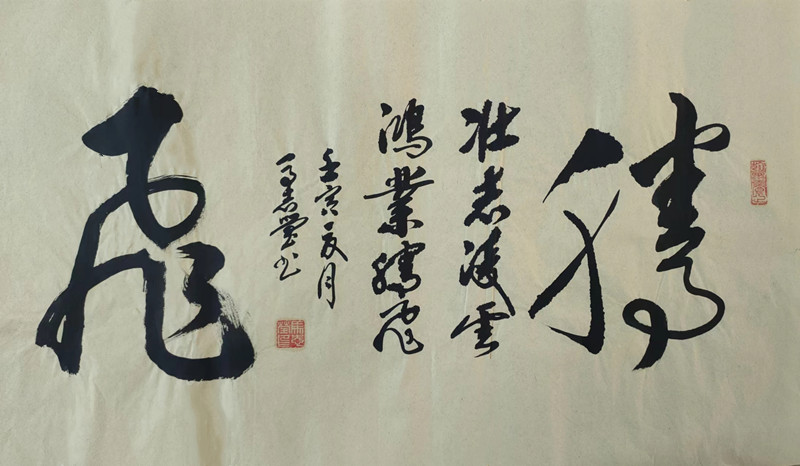 腾飞
壮志凌云
鸿業腾飞
壬寅夏月
马志书